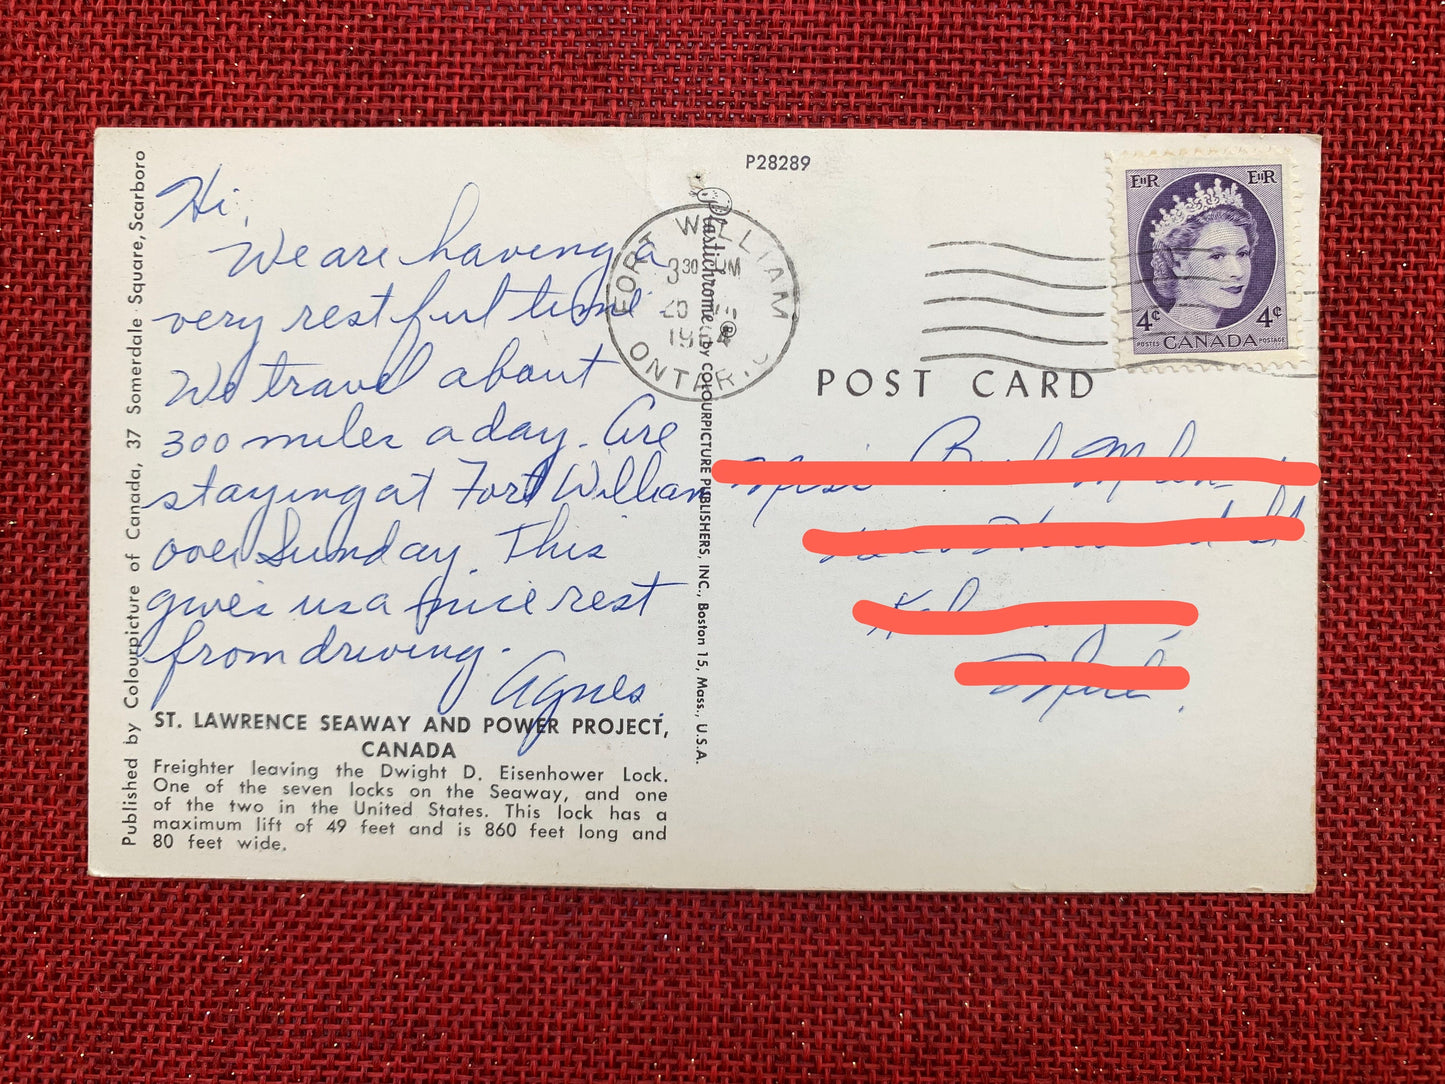 Hi,
We are having a
very restful time
We travel about
300 miles a day. Are
staying at Fort William
over Sunday. This
gives us a nice rest
from driving.
Agnes.
ST. LAWRENCE SEAWAY AND POWER PROJECT,
CANADA
Freighter leaving the Dwight D. Eisenhower Lock.
One of the seven locks on the Seaway, and one
of the two in the United States. This lock has a
maximum lift of 49 feet and is 860 feet long and
80 feet wide.
Published by Colourpicture of Canada, 37 Somerdale Square, Scarboro
Plastichrome® by COLOURPICTURE PUBLISHERS, INC., Boston 15, Mass., U.S.A.
P28289
FORT WILLIAM
3 30 PM
20
ONTARIO
EIIR EIIR
4¢ 4¢
POSTES CANADA POSTAGE
POST CARD
Miss